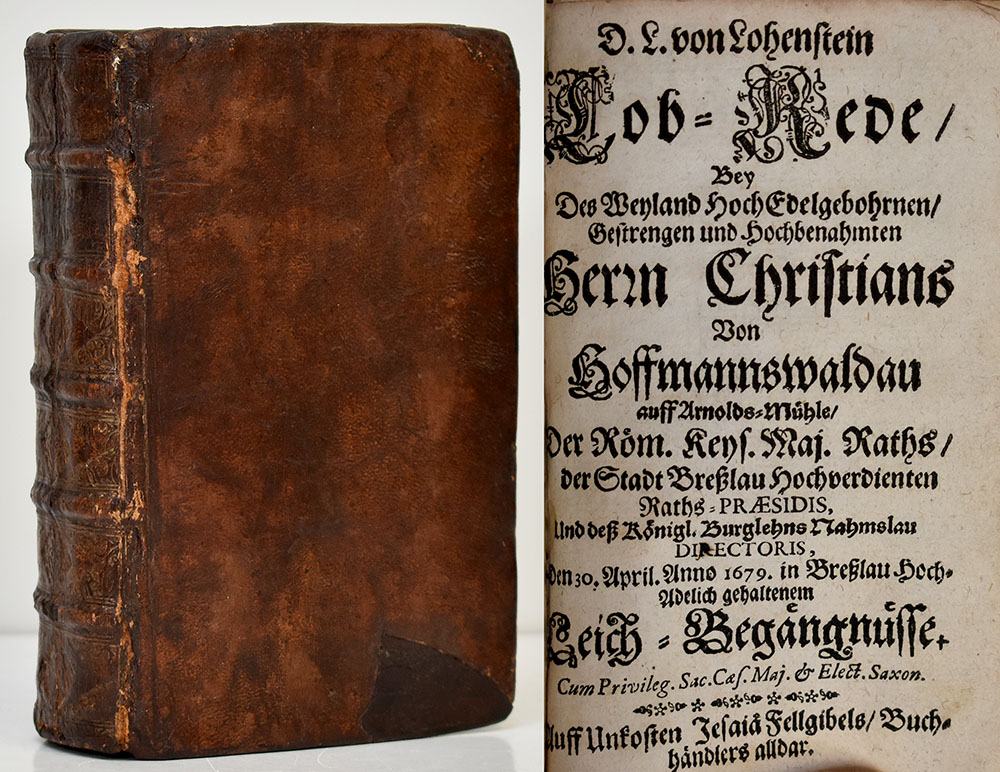 D. L. von Lohenstein
Lob-Rede/
Bey
Des Weyland HochEdelgebohrnen/
Gestrengen und Hochbenahmten
Herrn Christians
Von
Hoffmannswaldau
auff Arnolds-Mühle/
Der Röm. Keys. Maj. Raths/
der Stadt Breßlau Hochverdienten
Raths-PRÆSIDIS,
Und deß Königl. Burglehns Nahmslau
DIRECTORIS,
den 30. April. Anno 1679. in Breßlau Hoch-
Adelich gehaltenem
Leich-Begängnüsse.
Cum Privileg. Sac. Cæs. Maj. & Elect. Saxon.
Auff Unkosten Jesaiä Fellgibels/ Buch-
händlers alldar.